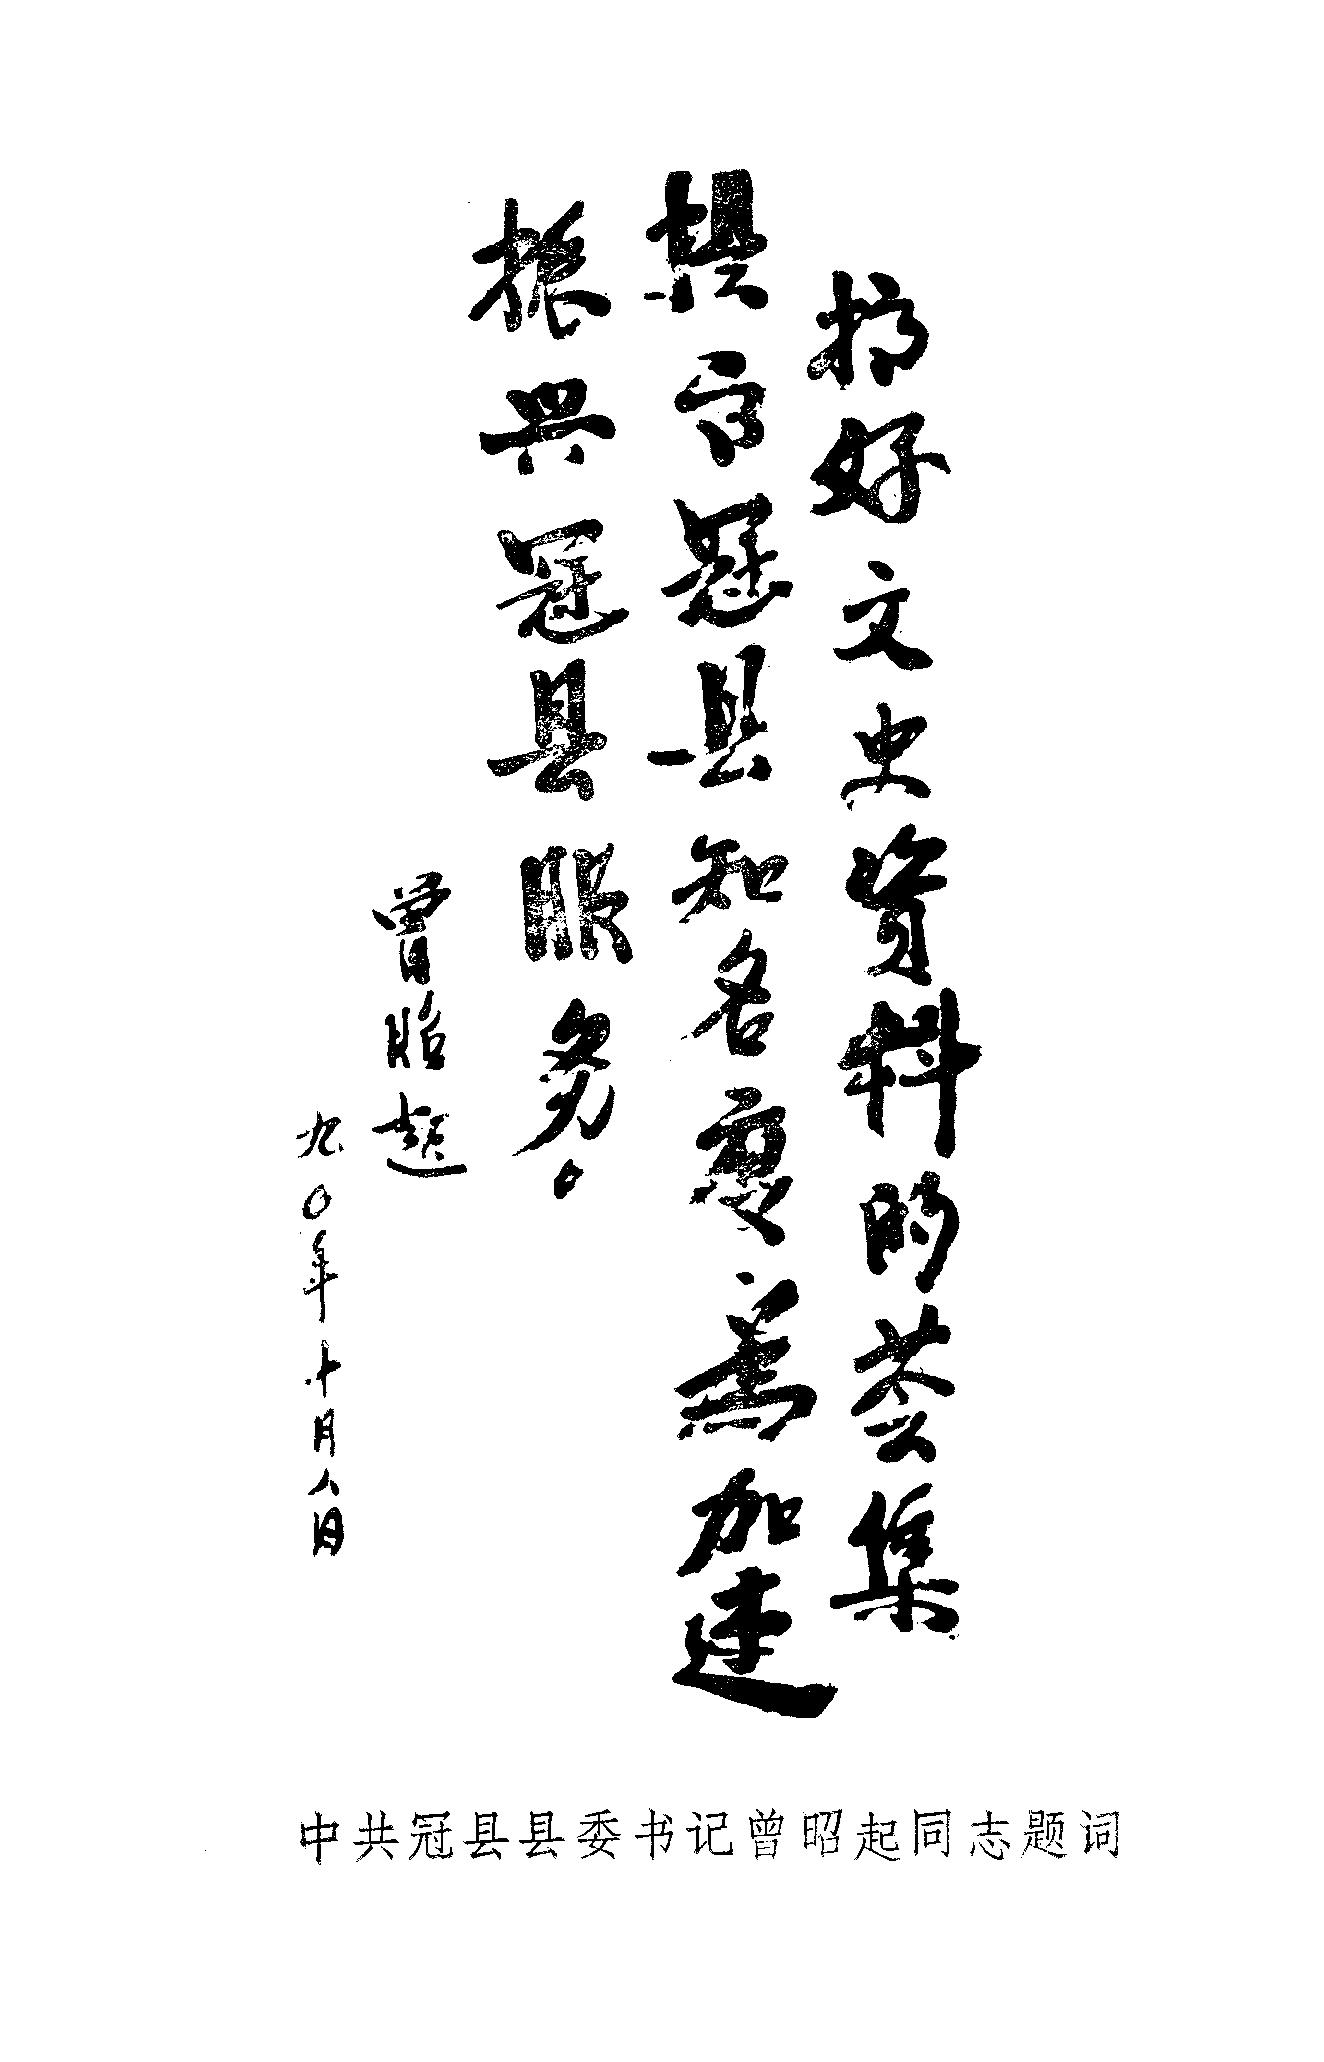 搞好文史资料的荟集
提高冠县知名度为加速
振兴冠县服务。
曾昭起
九〇年十月八日
中共冠县县委书记曾昭起同志题词